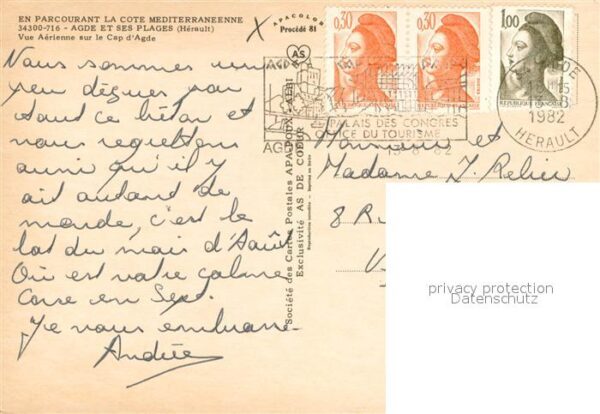 EN PARCOURANT LA COTE MEDITERRANEENNE
34300-716 - AGDE ET SES PLAGES (Hérault)
Vue Aérienne sur le Cap d'Agde
APACOLOR
Procédé 81
AS
Nous sommes un
peu déçues par
tout ce béton et
nous regrettons
aussi qu'il y
ait autant de
monde, c'est le
lot du mois d'Août
Où est notre calme
Corse en Sept.
Je vous embrasse
Andrée
Société des Cartes Postales APA-POUX - ALBI
Exclusivité AS DE COEUR
Reproduction interdite - Imprimé en Italie
0,30
0,30
1,00
REPUBLIQUE FRANÇAISE
PALAIS DES CONGRES
OFFICE DU TOURISME
1982
HERAULT
Monsieur et
Madame J. Relier
8 Ru
privacy protection
Datenschutz